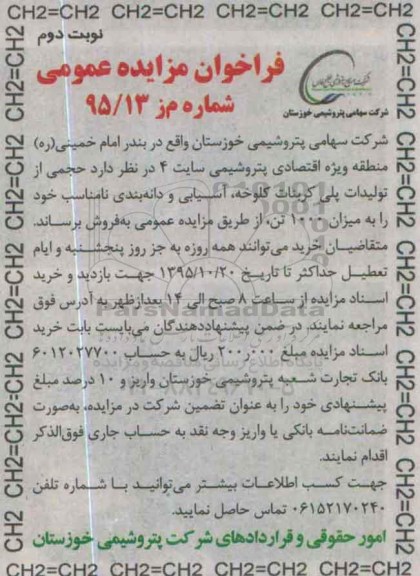 CH2=CH2 CH2=CH2 CH2=CH2 CH2=CH2
نوبت دوم
فراخوان مزایده عمومی
شماره م‌ز ۹۵/۱۳
شرکت سهامی پتروشیمی خوزستان
شرکت سهامی پتروشیمی خوزستان واقع در بندر امام خمینی(ره)
منطقه ویژه اقتصادی پتروشیمی سایت ۴ در نظر دارد حجمی از
تولیدات پلی کربنات کلوخه، آسیابی و دانه‌بندی نامناسب خود
را به میزان ۱۰۰۰ تن، از طریق مزایده عمومی به‌فروش برساند.
متقاضیان خرید می‌توانند همه روزه به جز روز پنجشنبه و ایام
تعطیل حداکثر تا تاریخ ۱۳۹۵/۱۰/۲۰ جهت بازدید و خرید
اسناد مزایده از ساعت ۸ صبح الی ۱۴ بعدازظهر به آدرس فوق
مراجعه نمایند. در ضمن پیشنهاددهندگان می‌بایست بابت خرید
اسناد مزایده مبلغ ۲۰۰٫۰۰۰ ریال به حساب ۶۰۱۲۰۲۷۷۰۰
بانک تجارت شعبه پتروشیمی خوزستان واریز و ۱۰ درصد مبلغ
پیشنهادی خود را به عنوان تضمین شرکت در مزایده، به‌صورت
ضمانت‌نامه بانکی یا واریز وجه نقد به حساب جاری فوق‌الذکر
اقدام نمایند.
جهت کسب اطلاعات بیشتر می‌توانید با شماره تلفن
۰۶۱۵۲۱۷۰۲۴۰ تماس حاصل نمایید.
امور حقوقی و قراردادهای شرکت پتروشیمی خوزستان
CH2=CH2 CH2=CH2 CH2=CH2 CH2=CH2
CH2=CH2 CH2=CH2 CH2=CH2 CH2=CH2
CH2=CH2 CH2=CH2 CH2=CH2 CH2=CH2
ParsNamadData
پایگاه اطلاع رسانی مناقصه و مزایده